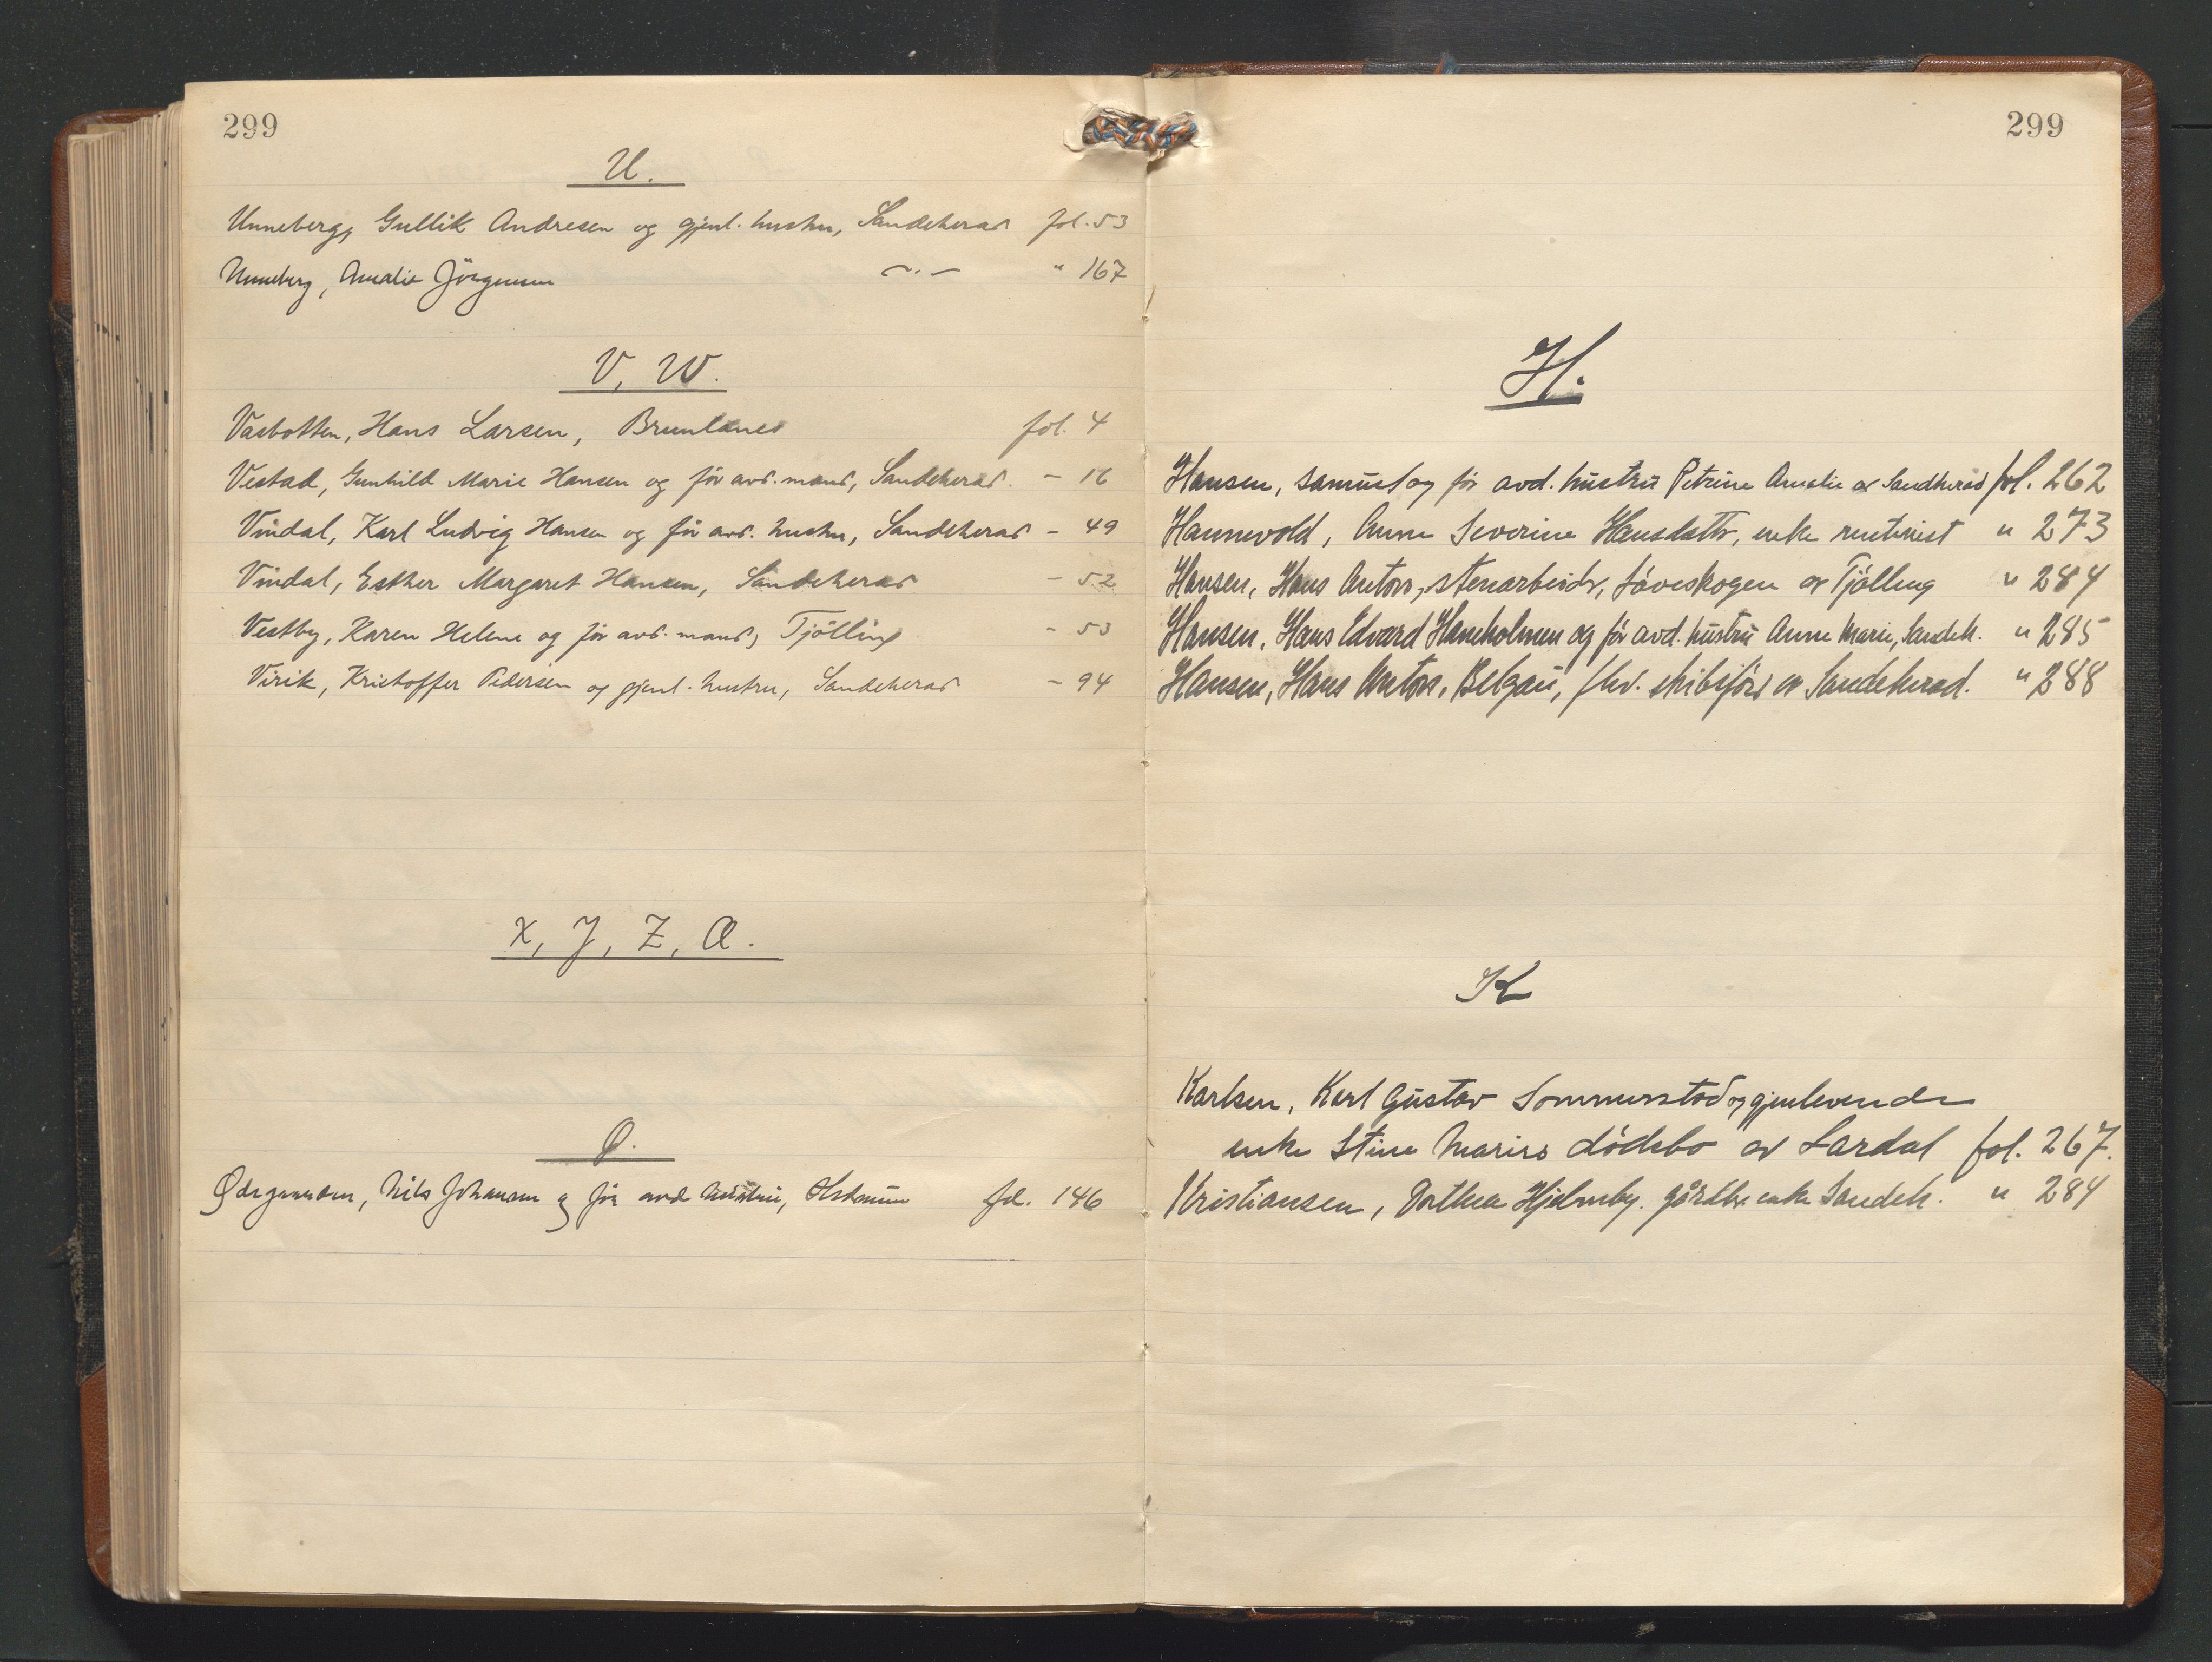 299
U.
Unneberg, Gullik Andresen og gjenl. hustru, Sandeherad fol. 53
Unneberg, Amalie Jörgensen —„— " 167
V, W.
Vasbotten, Hans Larsen, Brunlanes fol. 4
Vestad, Gunhild Marie Hansen og før avd. mand, Sandeherad. - 16
Vindal, Karl Ludvig Hansen og før avd. hustru, Sandeherad - 49
Vindal, Esther Margaret Hansen, Sandeherad - 52
Vestby, Karen Helene og før avd. mand, Tjölling - 53
Virik, Kristoffer Pedersen og gjenl. hustru, Sandeherad - 94
X, Y, Z, Æ.
Ø.
Ødegaarden, Nils Johansen og før avd hustru, Hedrum fol. 146
299
H.
Hansen, Samuel og før avd. hustru Petrine Amalie av Sandherad fol. 262
Hannevold, Anne Severine Hansdattr, enke rentenist " 273
Hansen, Hans Anton, stenarbeider, Löveskogen av Tjölling " 284
Hansen, Hans Edvard Haneholmen og før avd. hustru Anne Marie, Sandeh. " 285
Hansen, Hans Anton, Belgau, fhv. skibsfører av Sandeherad. " 288
K
Karlsen, Karl Gustav Sommerstad og gjenlevende
enke Stine Maries dödsbo av Lardal fol. 267.
Kristiansen, Dorthea Hjelmby. gårdbr. enke Sandeh. " 284